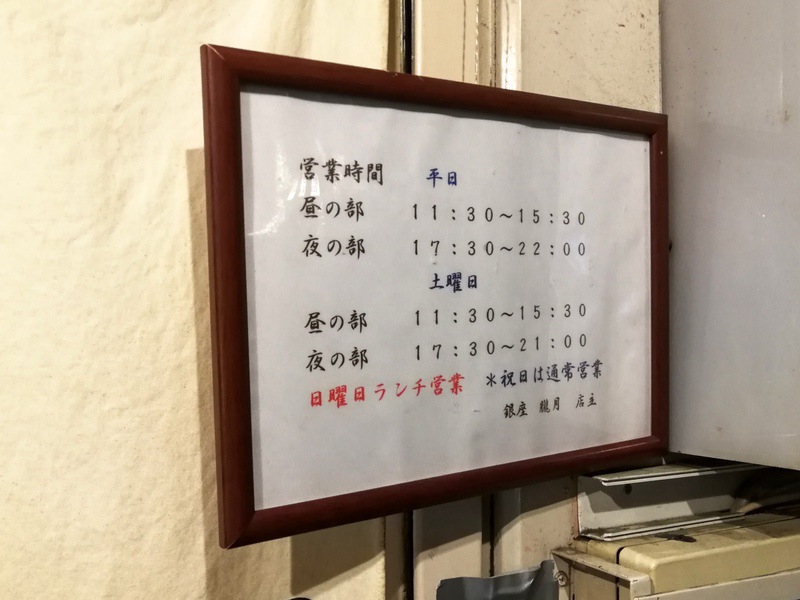 営業時間 平日
昼の部 11:30～15:30
夜の部 17:30～22:00
土曜日
昼の部 11:30～15:30
夜の部 17:30～21:00
日曜日ランチ営業 *祝日は通常営業
銀座 朧月 店主